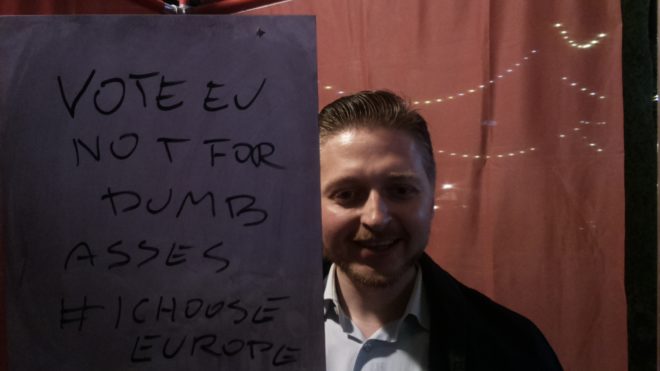 VOTE EU
NOT FOR
DUMB
ASSES
#ICHOOSE
EUROPE